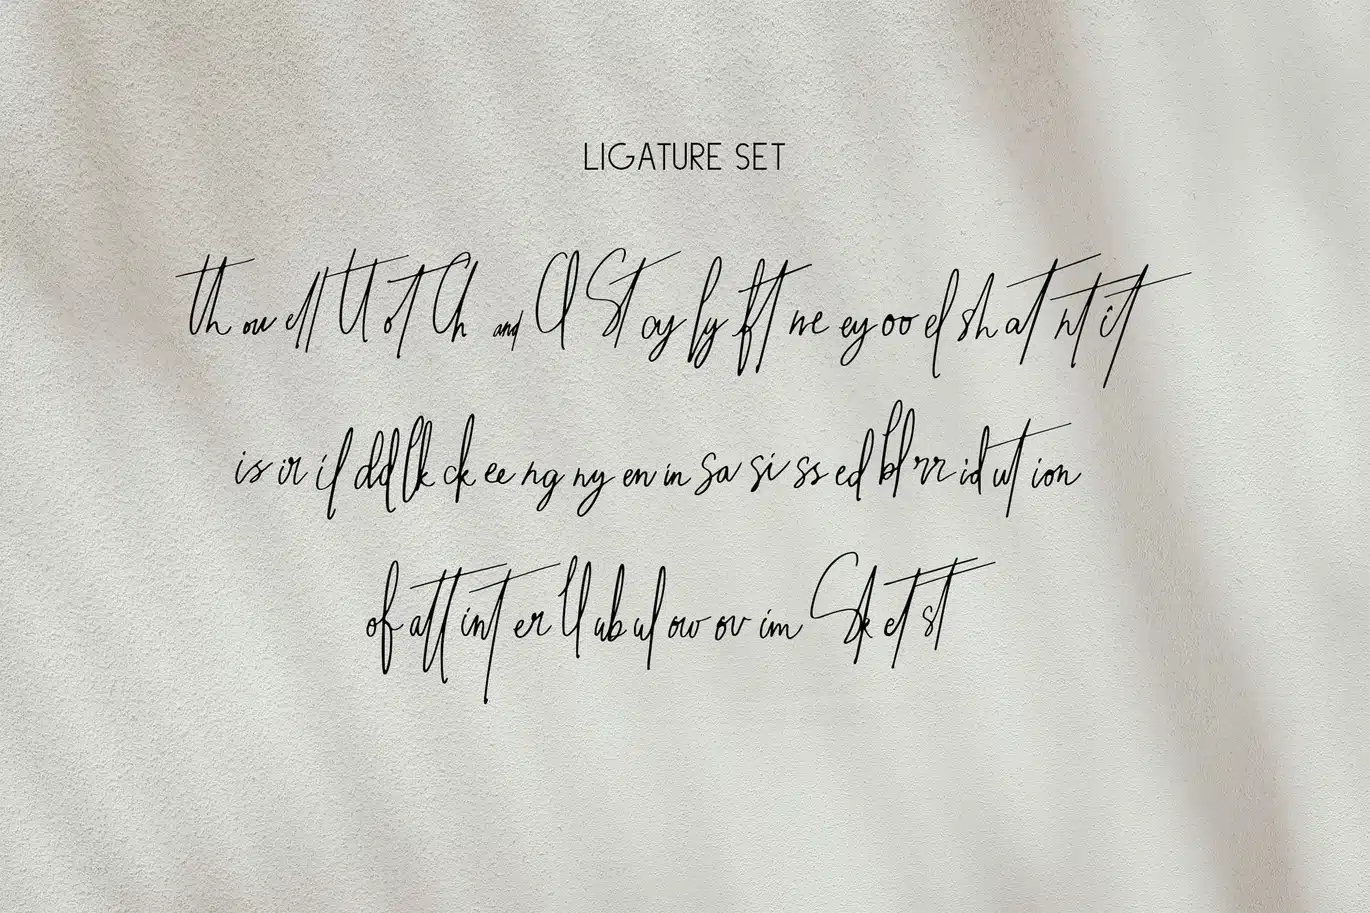 LIGATURE SET
th ou ell tt ot Ch and Cl St oy ly ft we ey oo el sh at nt it
is ir il dd lk ck ee ng ny en in sa si ss ed bl rr id ut ion
of att int er ll ub ul ow ov im Sk et st